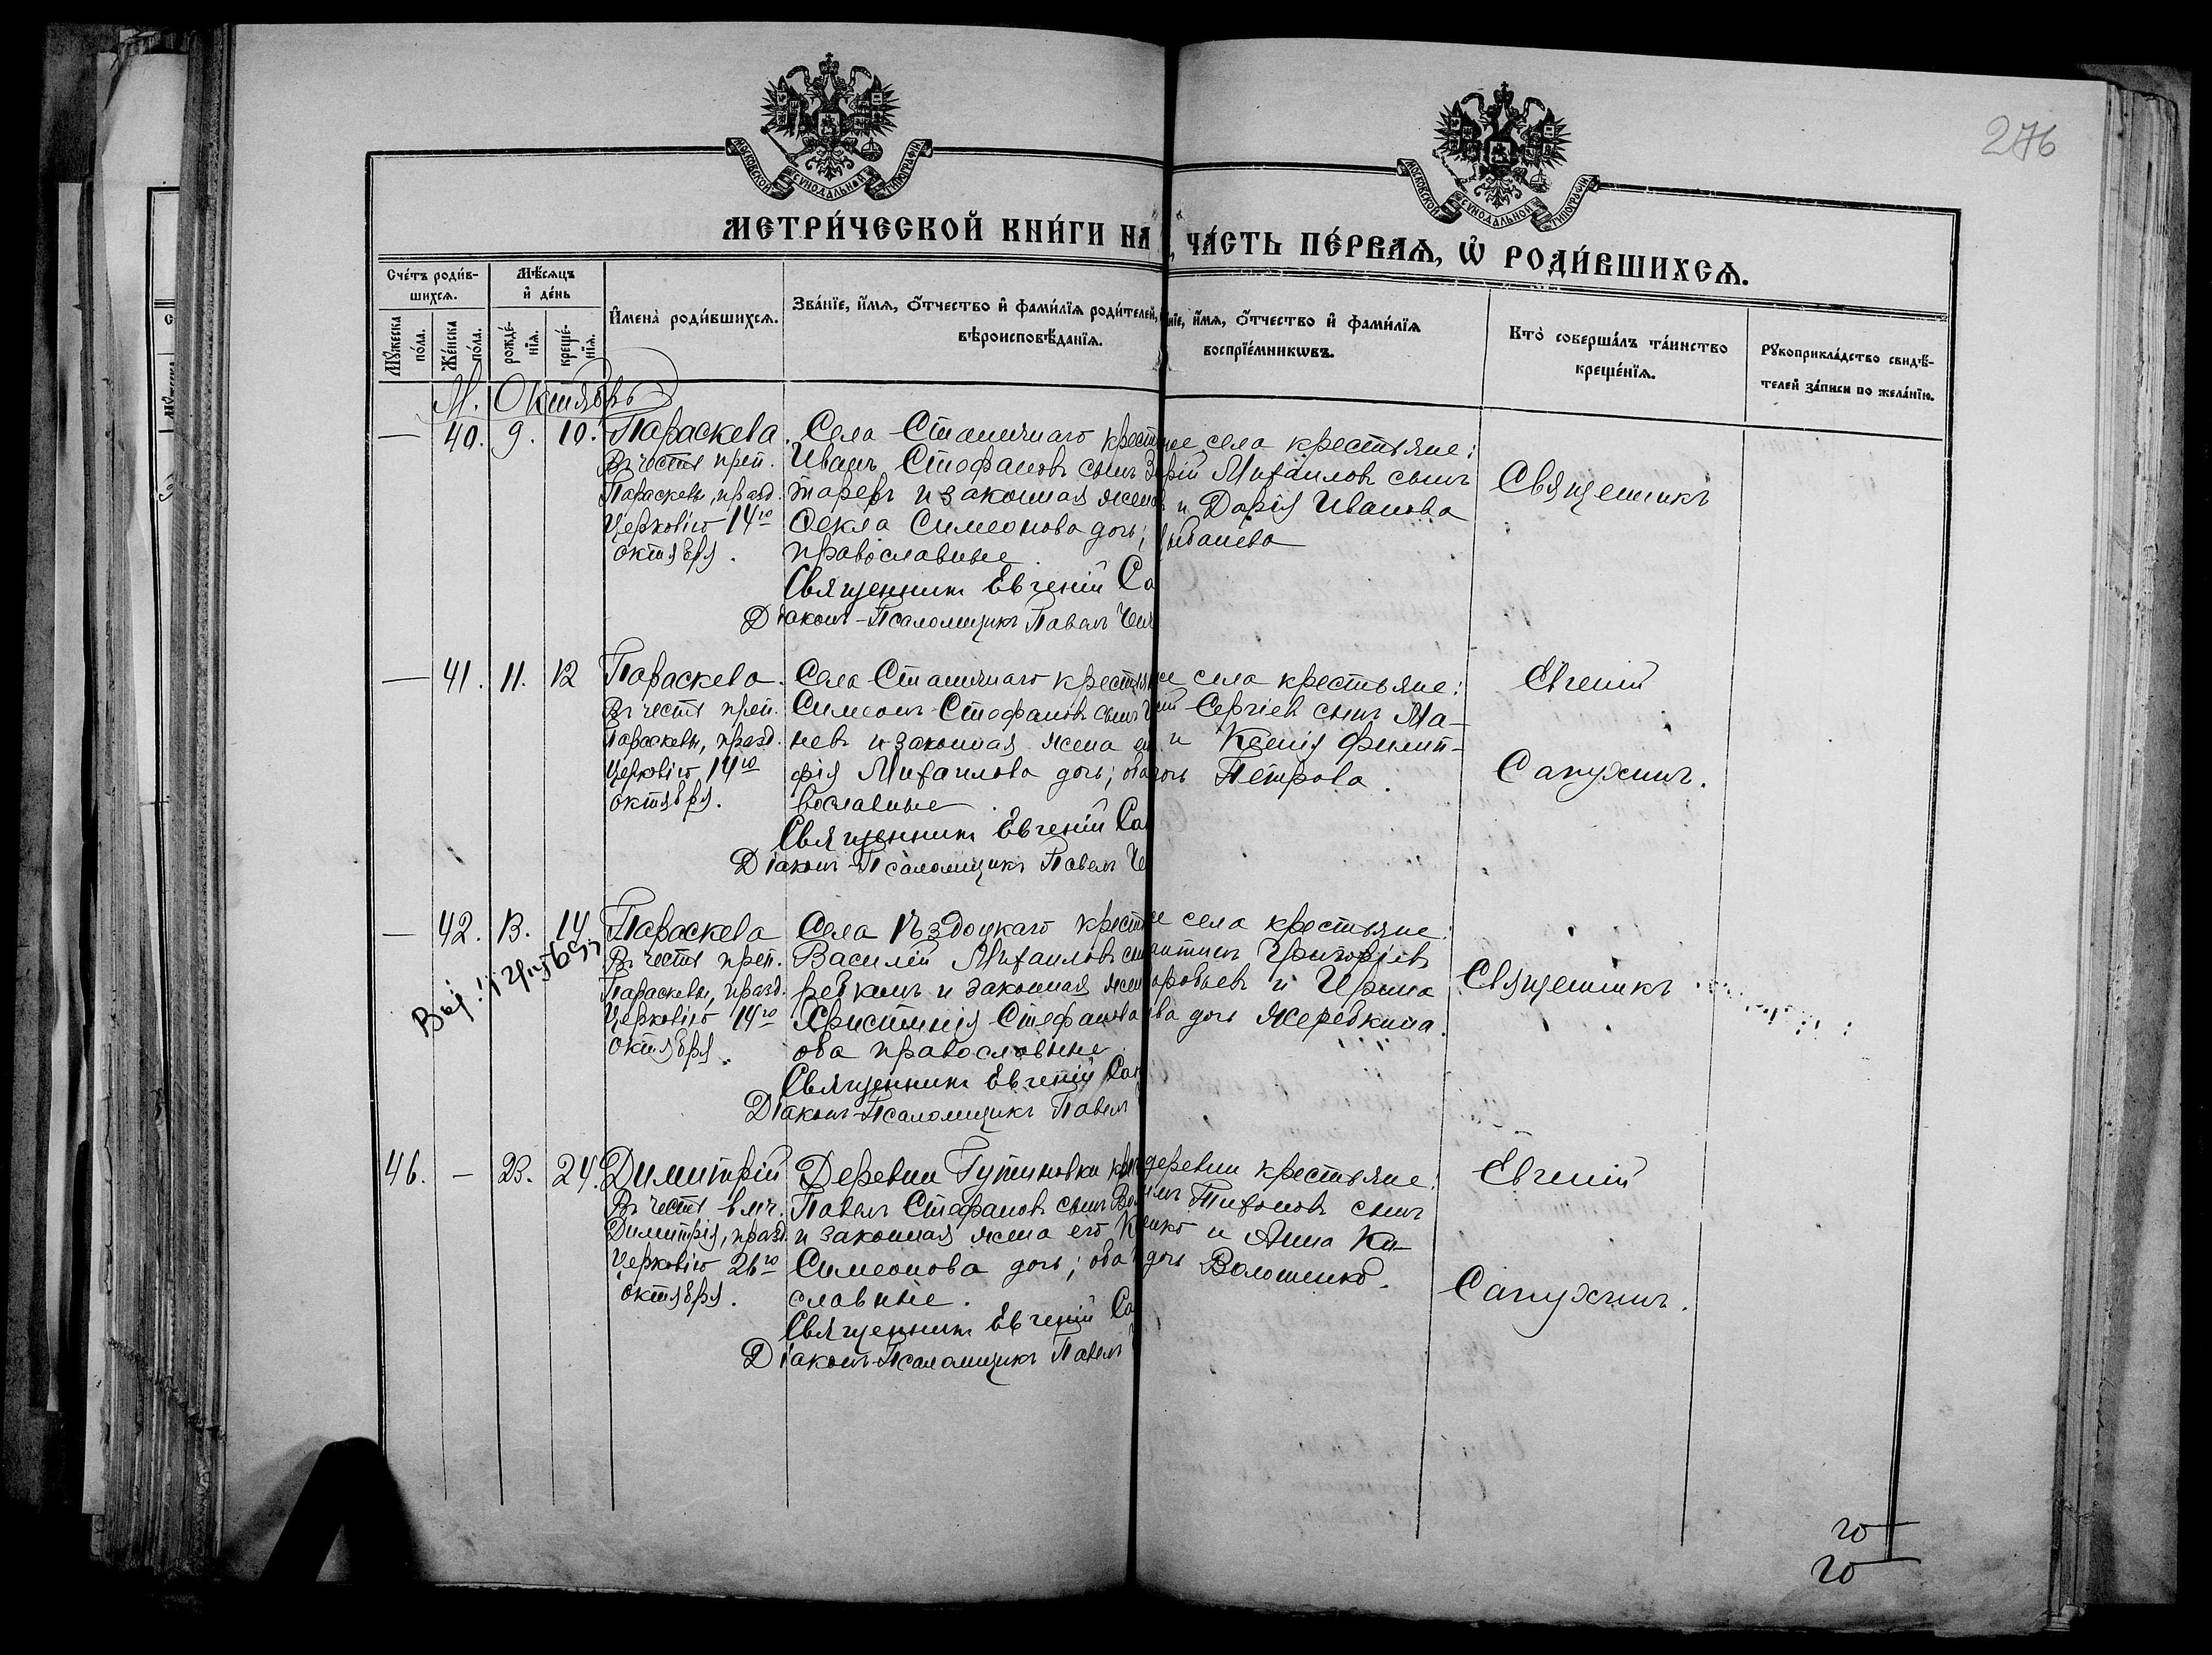 276
МОСКОВСКОЙ СѴНОДАЛЬНОЙ ТИПОГРАФІИ
МОСКОВСКОЙ СѴНОДАЛЬНОЙ ТИПОГРАФІИ
МЕТРИ́ЧЕСКОЙ КНИ́ГИ НА
ЧА́СТЬ ПЕ́РВАѦ, Ѽ РОДИ́ВШИХСѦ.
Сче́тъ роди́в-
шихсѧ.
Мѣ́сѧцъ
и҆ де́нь
Мꙋ́жеска
по́ла.
Же́нска
по́ла.
рожде́-
нїѧ.
креще́-
нїѧ.
И҆мена̀ роди́вшихсѧ.
Зва́нїе, и҆́мѧ, ѻ҆́тчество и҆ фами́лїѧ роди́телей,
вѣроисповѣ́данїѧ.
нїе, и҆́мѧ, ѻ҆́тчество и҆ фами́лїѧ
воспрїе́мникѡвъ.
Кто̀ соверша́лъ та́инство
креще́нїѧ.
Рꙋкоприкла́дство свидѣ́-
телей за́писи по жела́нїю.
М. Октябрь
— 40. 9. 10. Параскева.
Въ честь преп.
Параскевы, празд.
Церковію 14го
октября.
Села Станичнаго крест
Иванъ Стефановъ сынъ
таревъ и законная жена
Ѳекла Симеонова дочь;
православные.
Священникъ Евгеній Са
Діаконъ-Псаломщикъ Павелъ
села крестьяне:
Михаиловъ сынъ
и Дарія Иванова
Священникъ
— 41. 11. 12 Параскева.
Въ честь преп.
Параскевы, празд.
Церковію 14го
октября.
Села Станичнаго крестья
Симеонъ Стефановъ сынъ
невъ и законная жена ег
фія Михаилова дочь; оба
вославные.
Священникъ Евгеній Са
Діаконъ-Псаломщикъ Павелъ Че
села крестьяне:
Сергіевъ сынъ Ма-
и Ксенія Филип-
Петрова.
Евгеній
Сапухинъ.
— 42. 13. 14 Параскева
Въ честь преп.
Параскевы, празд.
Церковію 14го
октября.
Села Ѣздоцкаго крест
Василій Михаиловъ
ребкинъ и законная жен
Христинія Стефанова
оба православные
Священникъ Евгеній Сап
Діаконъ-Псаломщикъ Павелъ
села крестьяне:
Григоріевъ
и Ирина
дочь Жеребкина.
Священникъ
46. — 23. 24. Димитрій
Въ честь вмч.
Димитрія, празд.
Церковію 26го
октября.
Деревни Гутиновки
Павелъ Стефановъ сынъ
и законная жена его
Симеонова дочь; оба
славные.
Священникъ Евгеній Са
Діаконъ-Псаломщикъ Павелъ
деревни крестьяне:
Тихоновъ сынъ
и Анна Ки-
дочь Волошенко.
Евгеній
Сапухинъ.